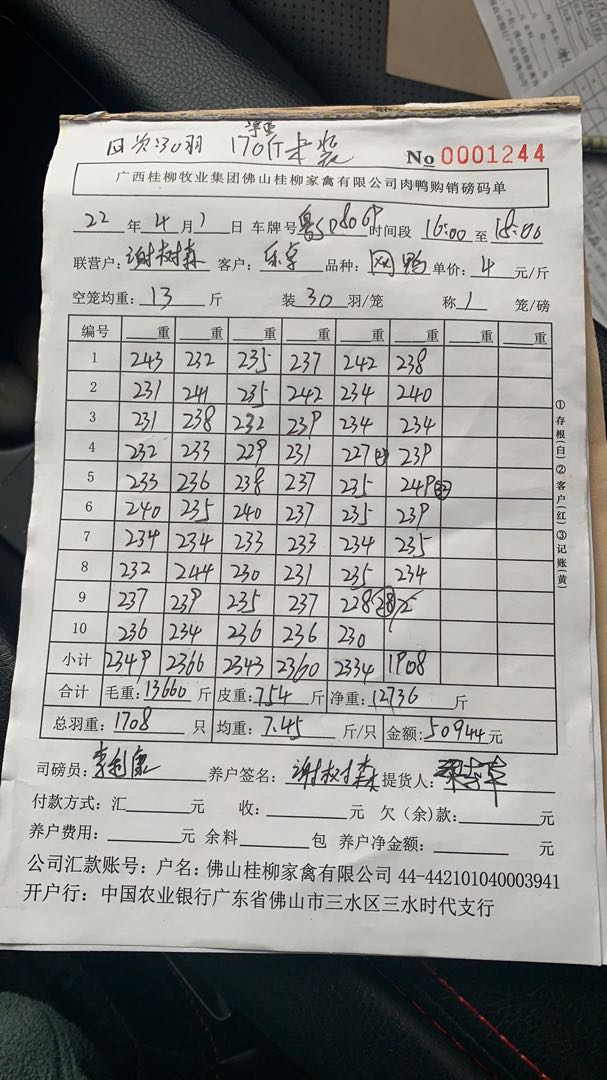 净重
回次30羽 170斤未装
No 0001244
广西桂柳牧业集团佛山桂柳家禽有限公司肉鸭购销磅码单
22 年 4 月 1 日 车牌号 时间段 16:00 至 18:00
联营户: 谢树森 客户: 乐卓 品种: 网鸭 单价: 4 元/斤
空笼均重: 13 斤 装 30 羽/笼 称 1 笼/磅
编号 重 重 重 重 重 重 重 重
1 243 232 235 237 242 238
2 231 241 235 242 234 240
3 231 238 232 239 234 234
4 232 233 229 231 227 239
5 233 236 238 237 235 249
6 240 235 240 237 235 239
7 234 234 233 233 234 235
8 232 244 230 231 235 234
9 237 239 235 237 228 28
10 236 234 236 236 230
小计 2349 2366 2343 2360 2334 1908
合计 毛重: 13660 斤 皮重: 754 斤 净重: 12736 斤
总羽重: 1708 只 均重: 7.45 斤/只 金额: 50944 元
司磅员: 养户签名: 谢树森 提货人:
付款方式: 汇 元 收: 元 欠(余)款: 元
养户费用: 元 余料 包 养户净金额: 元
公司汇款账号: 户名: 佛山桂柳家禽有限公司 44-442101040003941
开户行: 中国农业银行广东省佛山市三水区三水时代支行
①存根(白)②客户(红)③记账(黄)